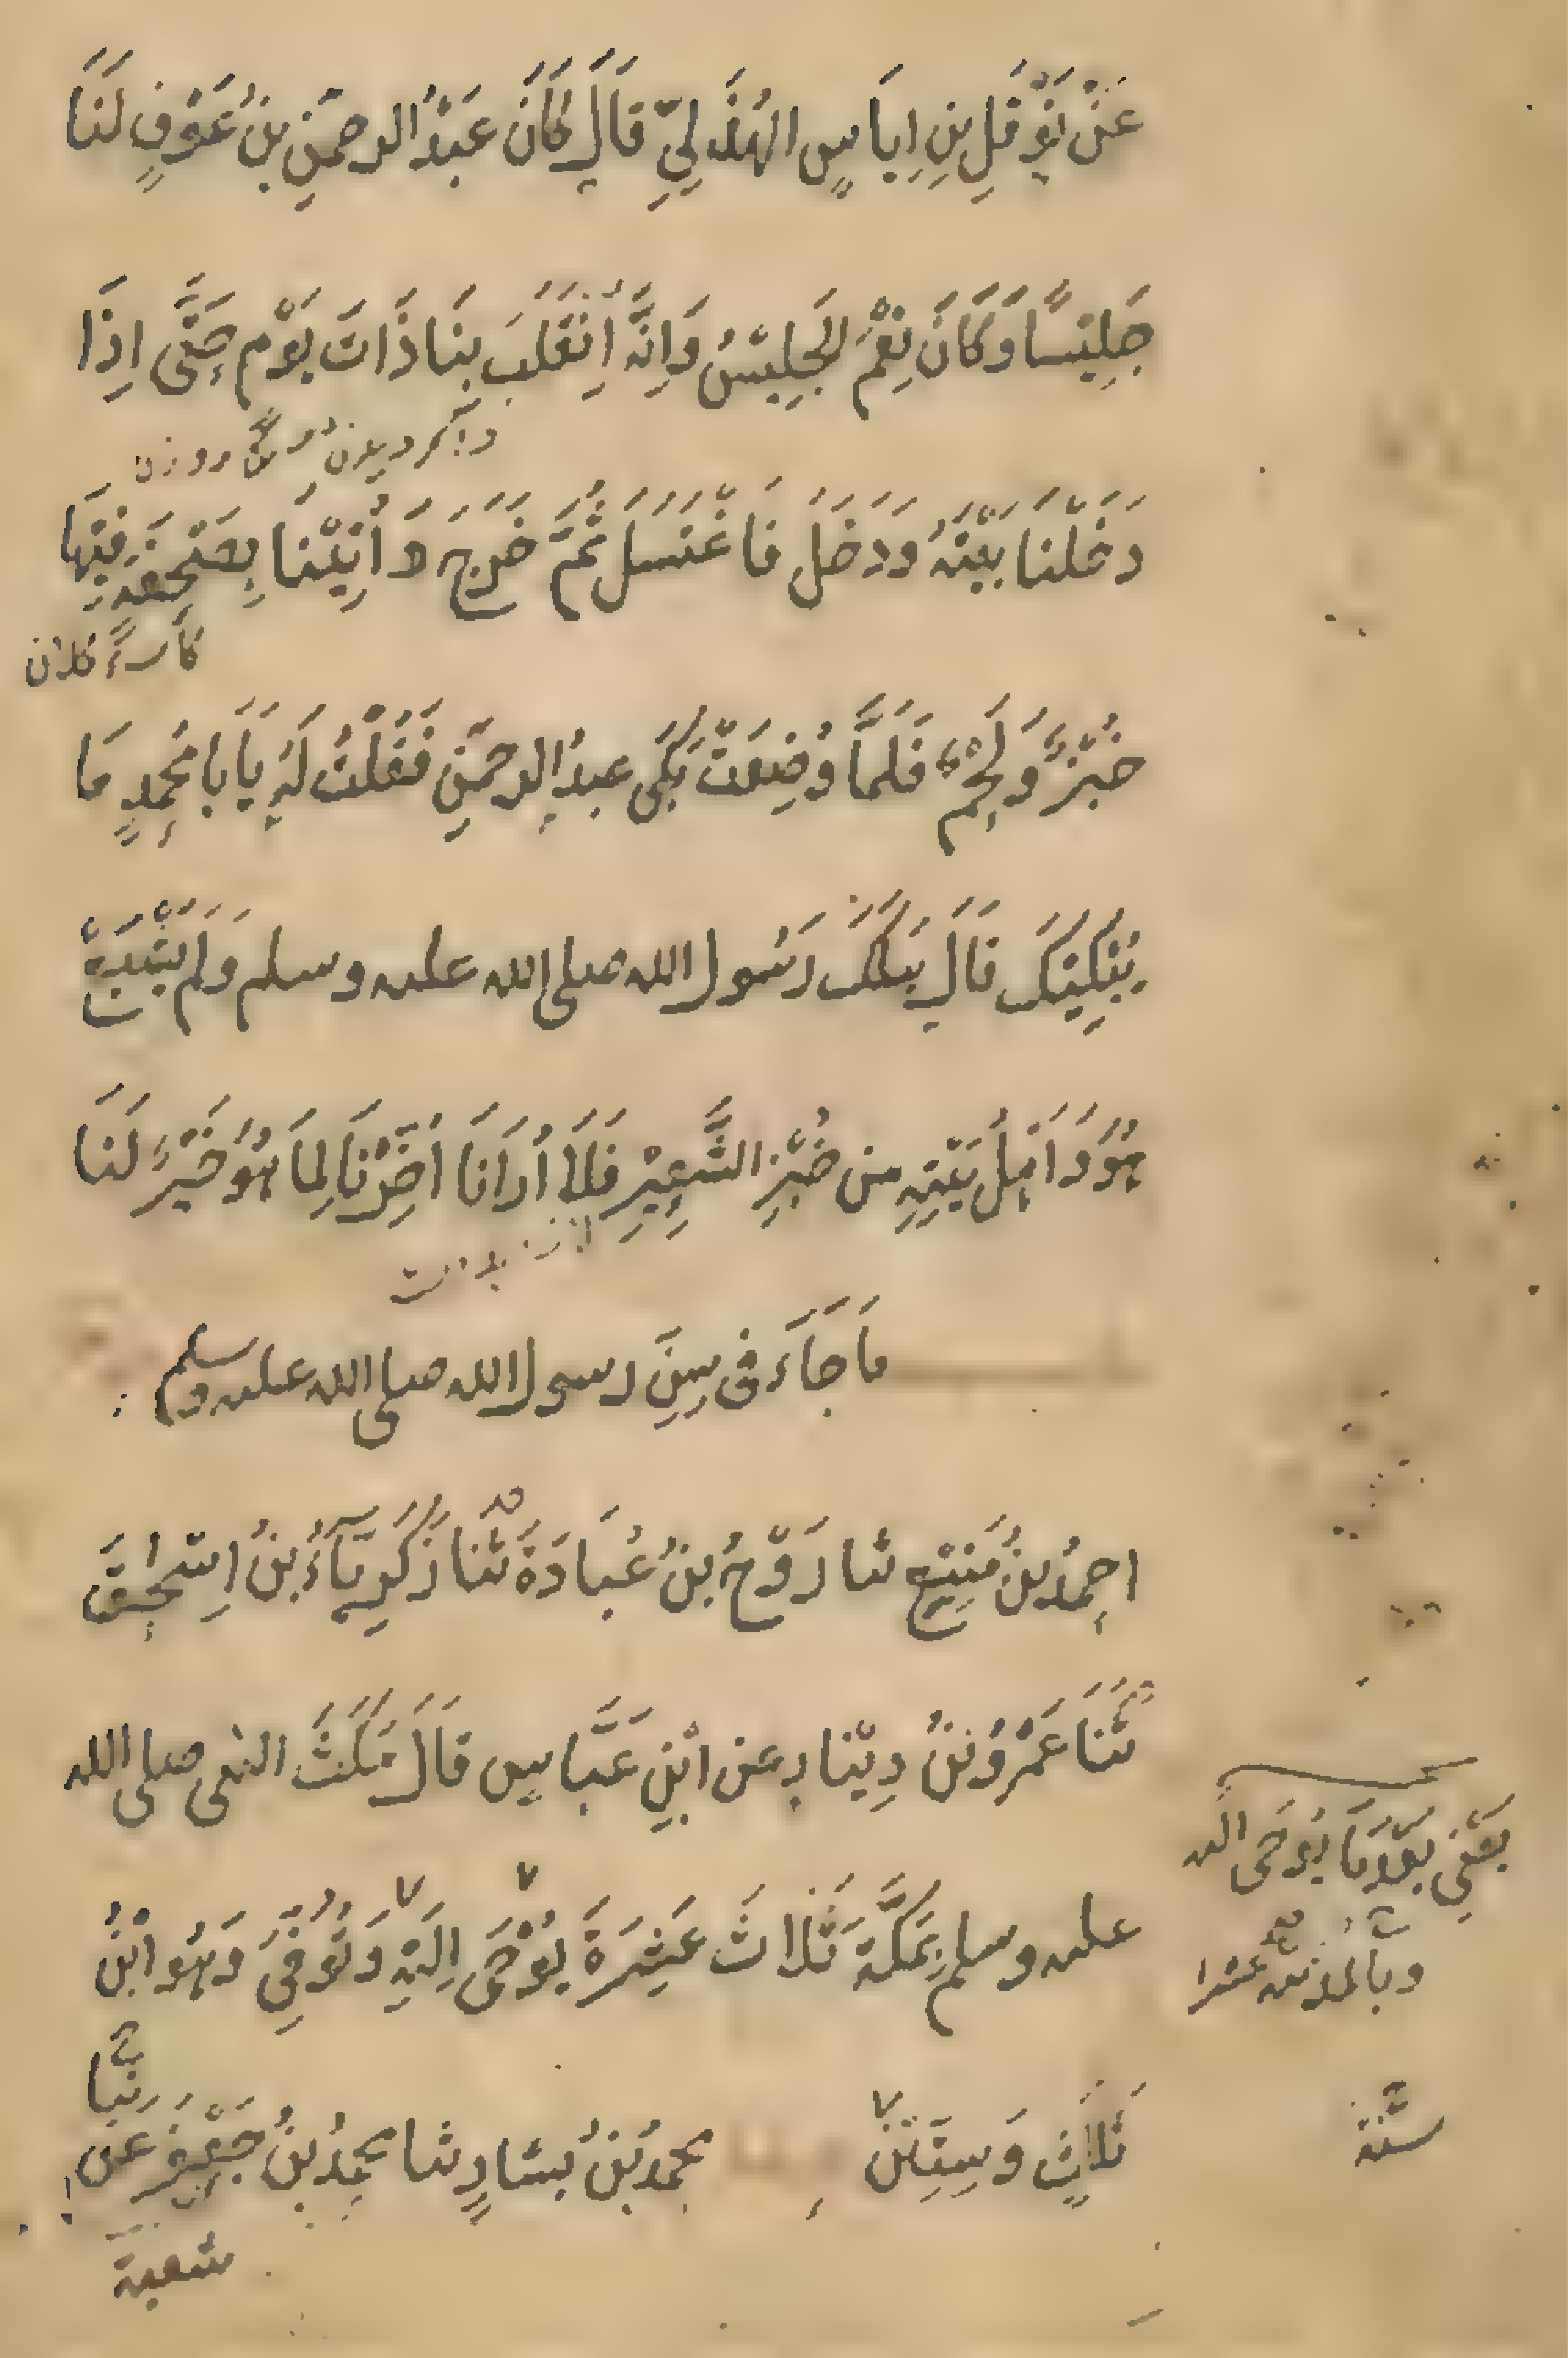 عَنْ نَوْفَلِ بْنِ اِيَاسٍ الهُذَلِيِّ قَالَ كَانَ عَبْدُ الرحمَنِ بنُ عَوْفٍ لَنَا
جَلِيْسًا وَكَانَ نِعْمَ الجَلِيْسُ وَاِنَّهُ اِنْقَلَبَ بِنَا ذَاتَ يَوْمٍ حَتَّى اِذَا
دَخَلْنَا بَيْتَهُ وَدَخَلَ فَاغْتَسَلَ ثُمَّ خَرَجَ وَاُتِيْنَا بِصَحْفَةٍ فِيْهَا
كاسهٔ كلان
خُبْزٌ وَلَحْمٌ فَلَمَّا وُضِعَتْ بَكَى عبدُ الرحمَنِ فَقُلْتُ لَهُ يَا بَا مُحَمدٍ مَا
يُبْكِيْكَ قَالَ هَلَكَ رَسُول الله صلى الله عليه وسلم وَلَم يَشْبَعْ
هُوَ وَاَهْلُ بَيْتِهِ من خُبْزِ الشَّعِيْرِ فَلَا اُرَانَا اُخِّرْنَا لِمَا هُوَ خَيْرٌ لَنَا
مَا جَاءَ فى سِنِّ رسول الله صلى الله عليه وسلم
احمدُ بنُ مَنِيْعٍ ثنا رَوْحُ بنُ عُبَادَةَ ثَنَا زَكَرِيَّاءُ بنُ اِسْحٰقَ
ثَنَا عَمْرُو بْنُ دِيْنَارٍ عن ابْنِ عَبَّاسٍ قَالَ مَكَثَ النبى صلى الله
عليه وسلم بِمَكَّةَ ثَلَاثَ عَشَرَةَ يُوْحَى اِلَيْهِ وَتُوُفِّيَ وَهُوَ ابْنُ
يَعْنِي بَعْدَ مَا يُوحَى اليه
وبالمدينة عشرا
سَنَة
ثَلَاثٍ وَسِتِّيْنَ محمدُ بْنُ بَشارٍ ثنا محمدُ بنُ جَعْفَرٍ عَن
شعبة